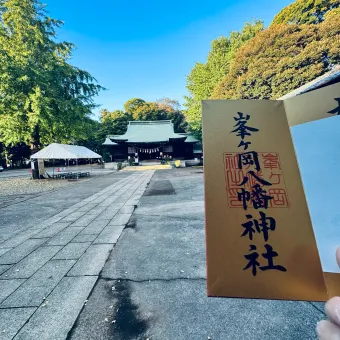 峯ヶ岡八幡神社